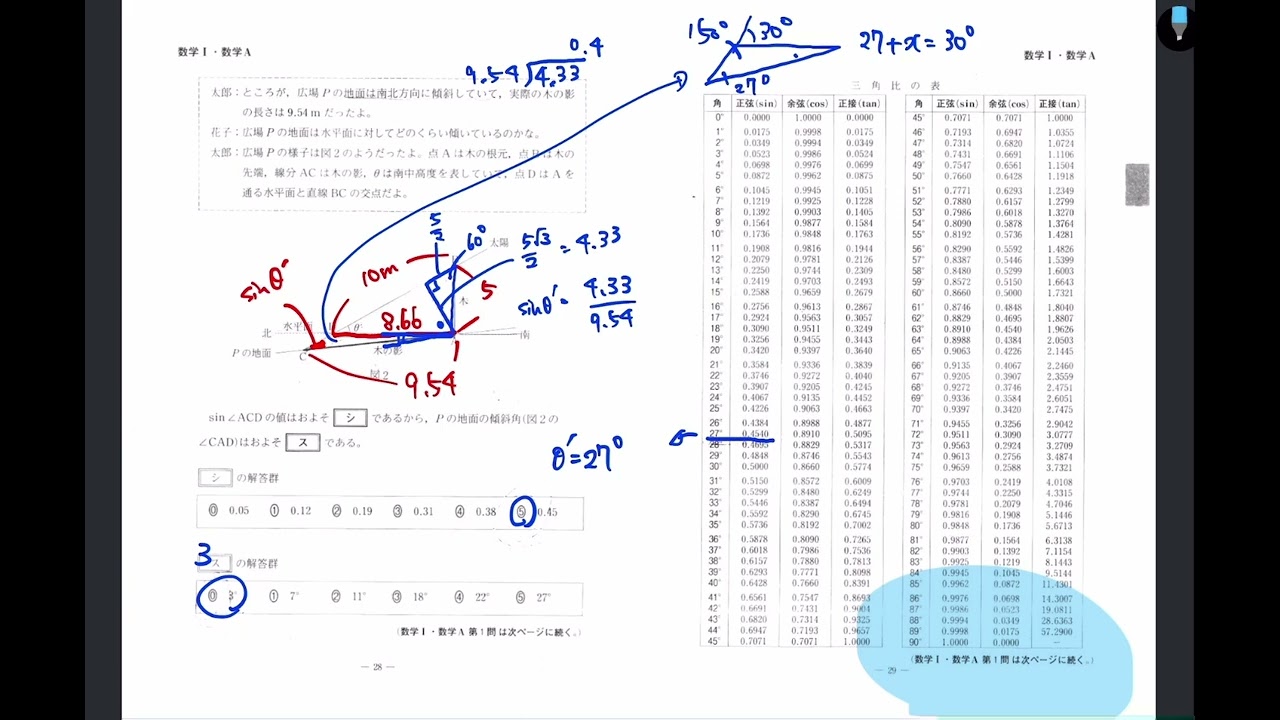 数学Ⅰ・数学A
太郎：ところが，広場Pの地面は南北方向に傾斜していて，実際の木の影
の長さは9.54mだったよ。
花子：広場Pの地面は水平面に対してどのくらい傾いているのかな。
太郎：広場Pの様子は図2のようだったよ。点Aは木の根元，点Bは木の
先端，線分ACは木の影，θは南中高度を表していて，点DはAを
通る水平面と直線BCの交点だよ。
0.4
9.54 4.33
5/2
60°
太陽
5√3/2 = 4.33
10m
5
sinθ'
sinθ' = 4.33/9.54
木
北
水平面
θ
8.66
南
Pの地面
C
木の影
図2
9.54
sin∠ACDの値はおよそ シ であるから，Pの地面の傾斜角(図2の
∠CAD)はおよそ ス である。
θ'=27°
シ の解答群
⓪ 0.05 ① 0.12 ② 0.19 ③ 0.31 ④ 0.38 ⑤ 0.45
3
ス の解答群
⓪ 3° ① 7° ② 11° ③ 18° ④ 22° ⑤ 27°
(数学Ⅰ・数学A 第1問は次ページに続く。)
— 28 —
150° 30°
27+x=30°
27°
数学Ⅰ・数学A
三角比の表
角 正弦(sin) 余弦(cos) 正接(tan) 角 正弦(sin) 余弦(cos) 正接(tan)
0° 0.0000 1.0000 0.0000 45° 0.7071 0.7071 1.0000
1° 0.0175 0.9998 0.0175 46° 0.7193 0.6947 1.0355
2° 0.0349 0.9994 0.0349 47° 0.7314 0.6820 1.0724
3° 0.0523 0.9986 0.0524 48° 0.7431 0.6691 1.1106
4° 0.0698 0.9976 0.0699 49° 0.7547 0.6561 1.1504
5° 0.0872 0.9962 0.0875 50° 0.7660 0.6428 1.1918
6° 0.1045 0.9945 0.1051 51° 0.7771 0.6293 1.2349
7° 0.1219 0.9925 0.1228 52° 0.7880 0.6157 1.2799
8° 0.1392 0.9903 0.1405 53° 0.7986 0.6018 1.3270
9° 0.1564 0.9877 0.1584 54° 0.8090 0.5878 1.3764
10° 0.1736 0.9848 0.1763 55° 0.8192 0.5736 1.4281
11° 0.1908 0.9816 0.1944 56° 0.8290 0.5592 1.4826
12° 0.2079 0.9781 0.2126 57° 0.8387 0.5446 1.5399
13° 0.2250 0.9744 0.2309 58° 0.8480 0.5299 1.6003
14° 0.2419 0.9703 0.2493 59° 0.8572 0.5150 1.6643
15° 0.2588 0.9659 0.2679 60° 0.8660 0.5000 1.7321
16° 0.2756 0.9613 0.2867 61° 0.8746 0.4848 1.8040
17° 0.2924 0.9563 0.3057 62° 0.8829 0.4695 1.8807
18° 0.3090 0.9511 0.3249 63° 0.8910 0.4540 1.9626
19° 0.3256 0.9455 0.3443 64° 0.8988 0.4384 2.0503
20° 0.3420 0.9397 0.3640 65° 0.9063 0.4226 2.1445
21° 0.3584 0.9336 0.3839 66° 0.9135 0.4067 2.2460
22° 0.3746 0.9272 0.4040 67° 0.9205 0.3907 2.3559
23° 0.3907 0.9205 0.4245 68° 0.9272 0.3746 2.4751
24° 0.4067 0.9135 0.4452 69° 0.9336 0.3584 2.6051
25° 0.4226 0.9063 0.4663 70° 0.9397 0.3420 2.7475
26° 0.4384 0.8988 0.4877 71° 0.9455 0.3256 2.9042
27° 0.4540 0.8910 0.5095 72° 0.9511 0.3090 3.0777
28° 0.4695 0.8829 0.5317 73° 0.9563 0.2924 3.2709
29° 0.4848 0.8746 0.5543 74° 0.9613 0.2756 3.4874
30° 0.5000 0.8660 0.5774 75° 0.9659 0.2588 3.7321
31° 0.5150 0.8572 0.6009 76° 0.9703 0.2419 4.0108
32° 0.5299 0.8480 0.6249 77° 0.9744 0.2250 4.3315
33° 0.5446 0.8387 0.6494 78° 0.9781 0.2079 4.7046
34° 0.5592 0.8290 0.6745 79° 0.9816 0.1908 5.1446
35° 0.5736 0.8192 0.7002 80° 0.9848 0.1736 5.6713
36° 0.5878 0.8090 0.7265 81° 0.9877 0.1564 6.3138
37° 0.6018 0.7986 0.7536 82° 0.9903 0.1392 7.1154
38° 0.6157 0.7880 0.7813 83° 0.9925 0.1219 8.1443
39° 0.6293 0.7771 0.8098 84° 0.9945 0.1045 9.5144
40° 0.6428 0.7660 0.8391 85° 0.9962 0.0872 11.4301
41° 0.6561 0.7547 0.8693 86° 0.9976 0.0698 14.3007
42° 0.6691 0.7431 0.9004 87° 0.9986 0.0523 19.0811
43° 0.6820 0.7314 0.9325 88° 0.9994 0.0349 28.6363
44° 0.6947 0.7193 0.9657 89° 0.9998 0.0175 57.2900
45° 0.7071 0.7071 1.0000 90° 1.0000 0.0000 —
(数学Ⅰ・数学A 第1問は次ページに続く。)
— 29 —